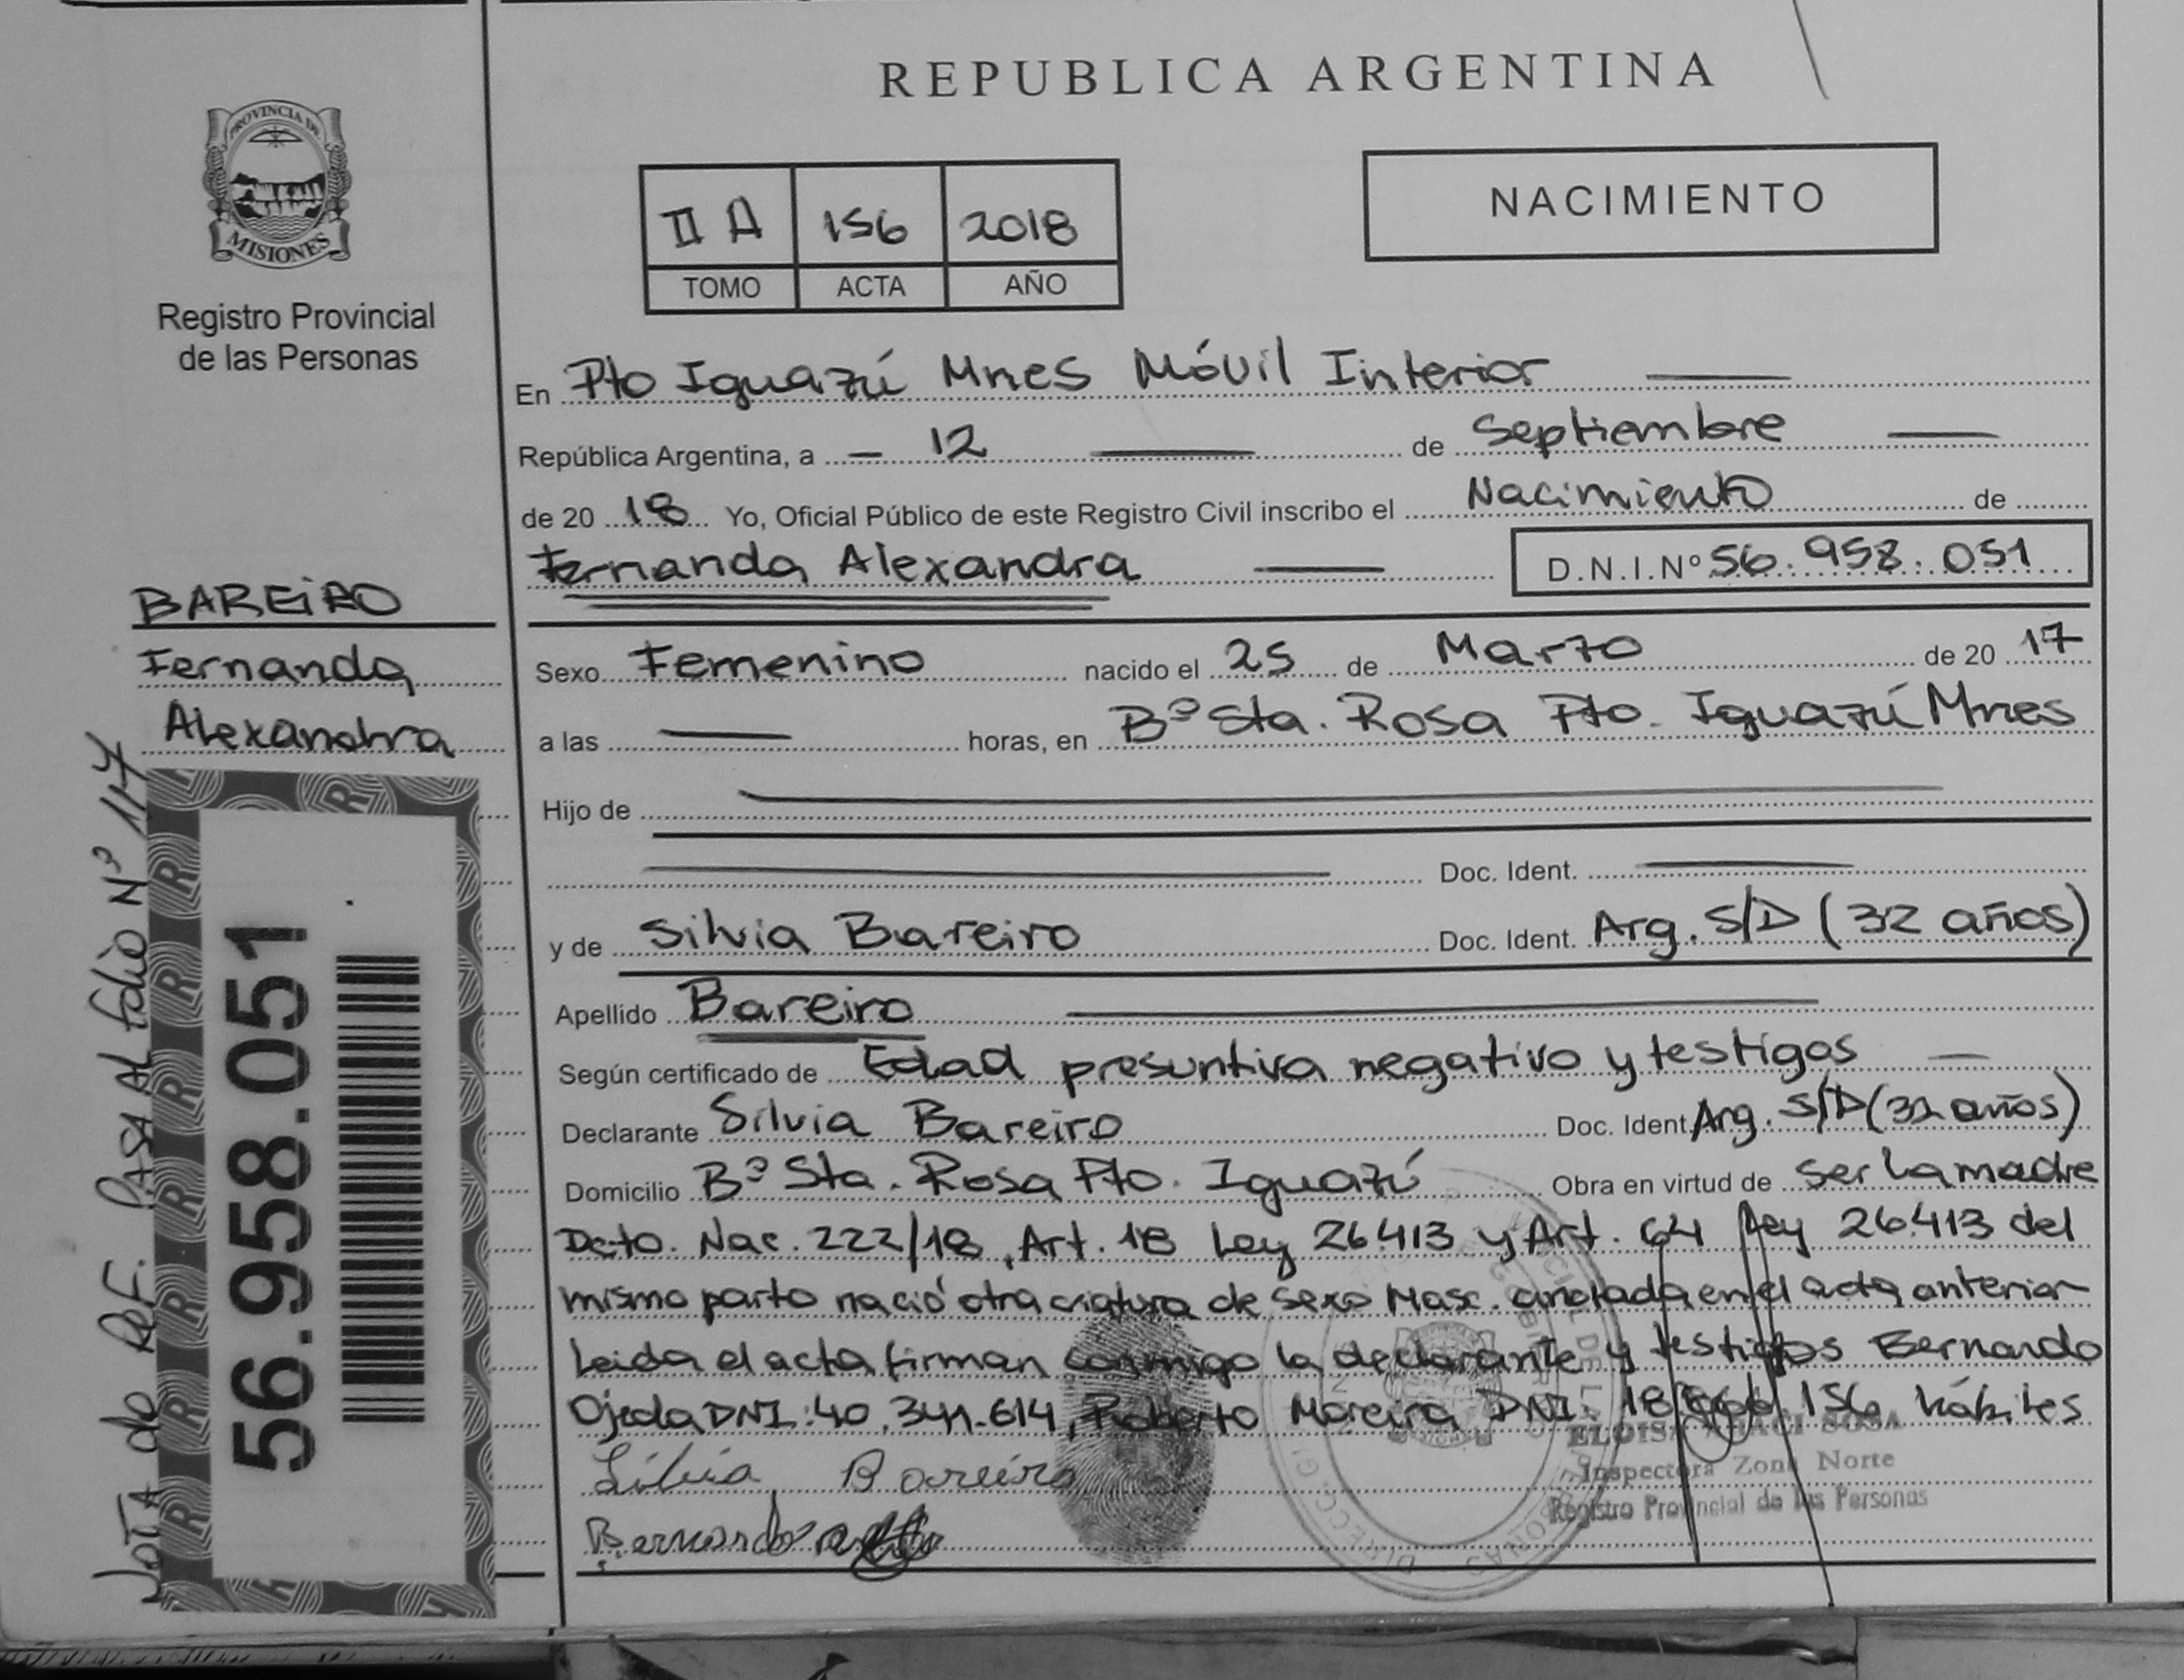 REPUBLICA ARGENTINA
PROVINCIA DE
MISIONES
Registro Provincial
de las Personas
II A 156 2018
TOMO ACTA AÑO
NACIMIENTO
En Pto Iguazú Mnes Móvil Interior
República Argentina, a 12 de Septiembre
de 20 18 Yo, Oficial Público de este Registro Civil inscribo el Nacimiento de
Fernanda Alexandra D.N.I.Nº 56.958.051
BAREIRO
Fernanda
Alexandra
Sexo Femenino nacido el 25 de Marzo de 20 17
a las horas, en Bº Sta. Rosa Pto. Iguazú Mnes
Hijo de
Doc. Ident.
y de Silvia Bareiro Doc. Ident. Arg. S/D (32 años)
Apellido Bareiro
Según certificado de Edad presuntiva negativo y testigos
Declarante Silvia Bareiro Doc. Ident. Arg. S/D (32 años)
Domicilio Bº Sta. Rosa Pto. Iguazú Obra en virtud de ser la madre
Dcto. Nac. 222/18, Art. 18 Ley 26413 y Art. 64 Ley 26.413 del
mismo parto nació otra criatura de sexo Masc. anotada en el acta anterior
Leida el acta firman conmigo la declarante y testigos Bernardo
Ojeda DNI: 40.341.614, Roberto Moreira DNI: 156 hábiles
Silvia Bareiro
Bernardo
SOSA
Inspectora Zona Norte
Registro Provincial de las Personas
NOTA de REF. PASA AL folio Nº 117
56.958.051